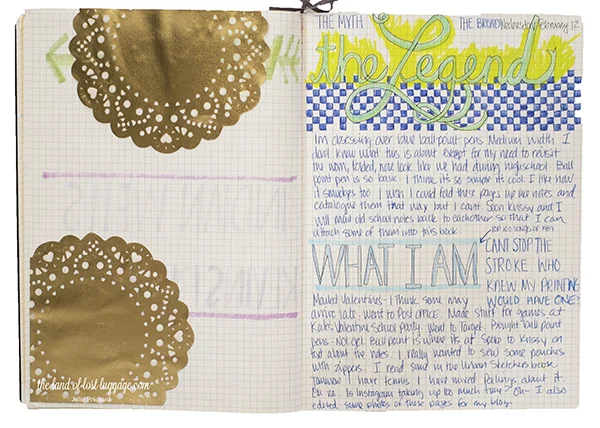 THE MYTH THE BROAD Wednesday, February 12
the Legend
Im obsessing over blue ball point pens Medium width I
dont know what this is about except for my need to revisit
the worn, folded, note look like we had during highschool. Ball
point pen is so basic I think its so simple its cool. I like how
it smudges too. I wish I could fold these pages up like notes and
catalogue them that way but I cant. Soon Krissy and I
will mail old school notes back to eachother so that I can
attach some of them into this book.
TOP 100 SONGS OF 1981
WHAT I AM
CANT STOP THE
STROKE. WHO
KNEW MY PRINTING
WOULD HAVE ONE?
Mailed Valentines - I think some may
arrive late. Went to Post office. Made stuff for games at
Kates Valentine School Party. Went to Target. Bought ball point
pens - Not gel. Ball point is where its at. Spoke to Krissy on
text about the notes. I really wanted to sew some pouches
with zippers. I read some in the Urban Sketchers book
Tomorrow I have tennis. I have mixed feelings about it.
Oh no. Is Instagram taking up too much time? Oh - I also
edited some photos of these pages for my blog.
the-land-of-lost-luggage.com
Julie Prichard